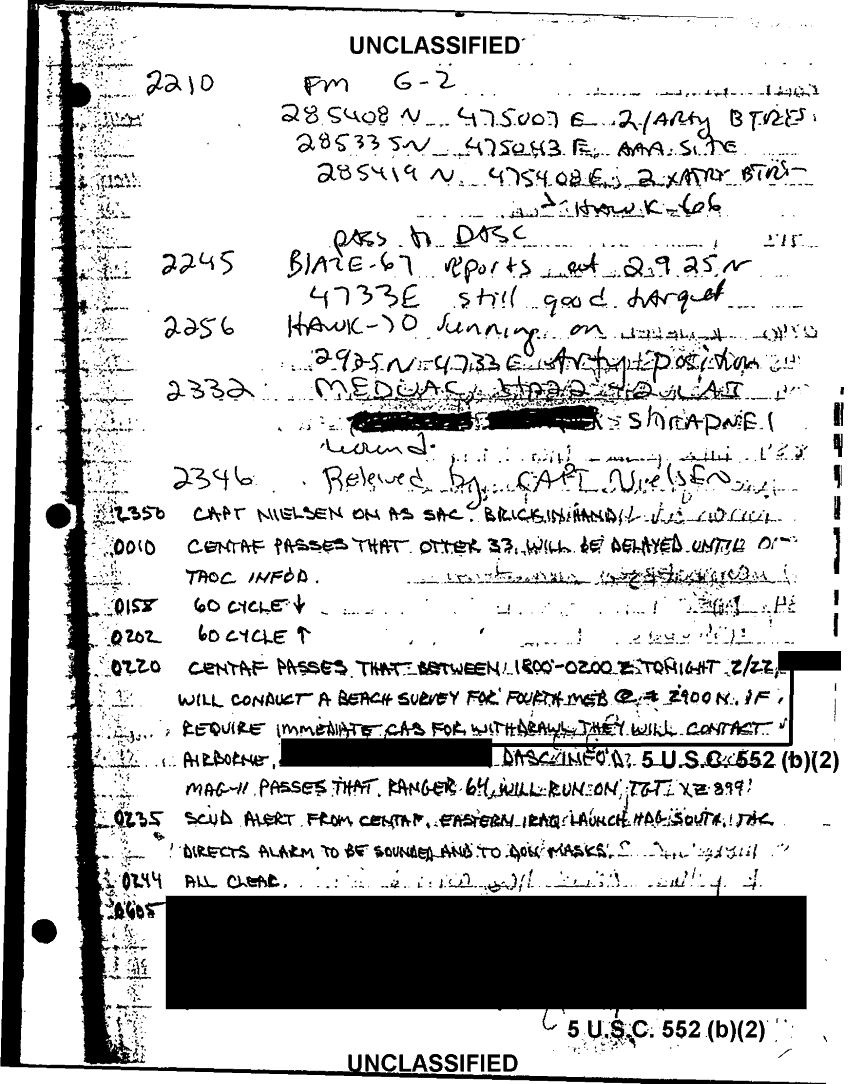 UNCLASSIFIED
2210 Fm G-2
285408 N 475007 E 2/Arty BTRES.
285335N 475043 E, AAA SITE
285419 N 475408E, 2 XATRY BTRS-
HAWK-66
pass to DASC
2245 BLAZE-67 reports at 2925N
4733E still good target
2256 HAWK-70 running on
2925N 4733E Arty position
2332 MEDUAC,
SHRAPNEL
wound.
2346 Releived by CAPT NielsEN
2350 CAPT NIELSEN ON AS SAC. BRICK IN HAND
0010 CENTAF PASSES THAT OTTER 33 WILL BE DELAYED UNTIL
TAOC INFO'D.
0158 60 CYCLE ↓
0202 60 CYCLE ↑
0220 CENTAF PASSES THAT BETWEEN 1800-0200 Z TONIGHT 2/22,
WILL CONDUCT A BEACH SURVEY FOR FOURTH MEB @ ≠ 2900N. IF
REQUIRE IMMEDIATE CAS FOR WITHDRAWL THEY WILL CONTACT
AIRBORNE, DASC INFO'D. 5 U.S.C. 552 (b)(2)
MAG-11 PASSES THAT RANGER 64 WILL RUN ON TGT.
0235 SCUD ALERT FROM CENTAF, EASTERN IRAQ LAUNCH HDG SOUTH. TAC
DIRECTS ALARM TO BE SOUNDED AND TO DON MASKS.
0244 ALL CLEAR.
0605
5 U.S.C. 552 (b)(2)
UNCLASSIFIED